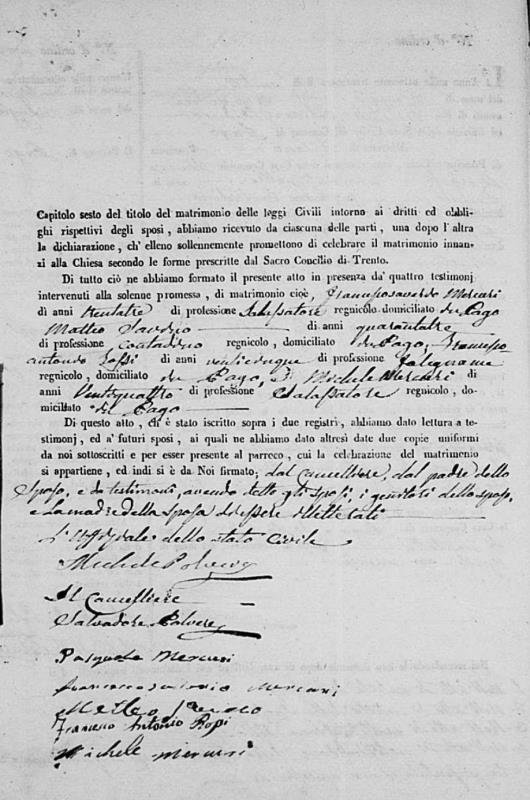 Capitolo sesto del titolo del matrimonio delle leggi Civili intorno ai dritti ed obbli-
ghi rispettivi degli sposi, abbiamo ricevuto da ciascuna delle parti, una dopo l'altra
la dichiarazione, ch' elleno sollennemente promettono di celebrare il matrimonio innan-
zi alla Chiesa secondo le forme prescritte dal Sacro Concilio di Trento.
Di tutto ciò ne abbiamo formato il presente atto in presenza da' quattro testimonj
intervenuti alla solenne promessa, di matrimonio cioè, Francesosaverio Mercuri
di anni trentatre di professione Salassatore regnicolo domiciliato in Pago
Matteo di anni quarantatre
di professione contadino regnicolo, domiciliato in Pago, Francesco
antonio Rossi di anni venticinque di professione Falegname
regnicolo, domiciliato in Pago, Michele Mercuri di
anni Ventiquattro di professione Salassatore regnicolo, do-
miciliato in Pago
Di questo atto, ch'è stato iscritto sopra i due registri, abbiamo dato lettura a te-
stimonj, ed a' futuri sposi, ai quali ne abbiamo dato altresì date due copie uniformi
da noi sottoscritti e per esser presente al parreco, cui la celebrazione del matrimonio
si appartiene, ed indi si è da Noi firmato, dal Cancelliere, dal padre dello
Sposo, e da testimonj, avendo detto gli sposi, i genitori dello sposo,
e la madre della sposa di essere illetterati
L'Uffiziale dello stato Civile
Michele
Il Cancelliere
Salvadore
Pasquale Mercuri
francescosaverio Mercuri
Matteo
Francesco Antonio Rossi
Michele Mercuri